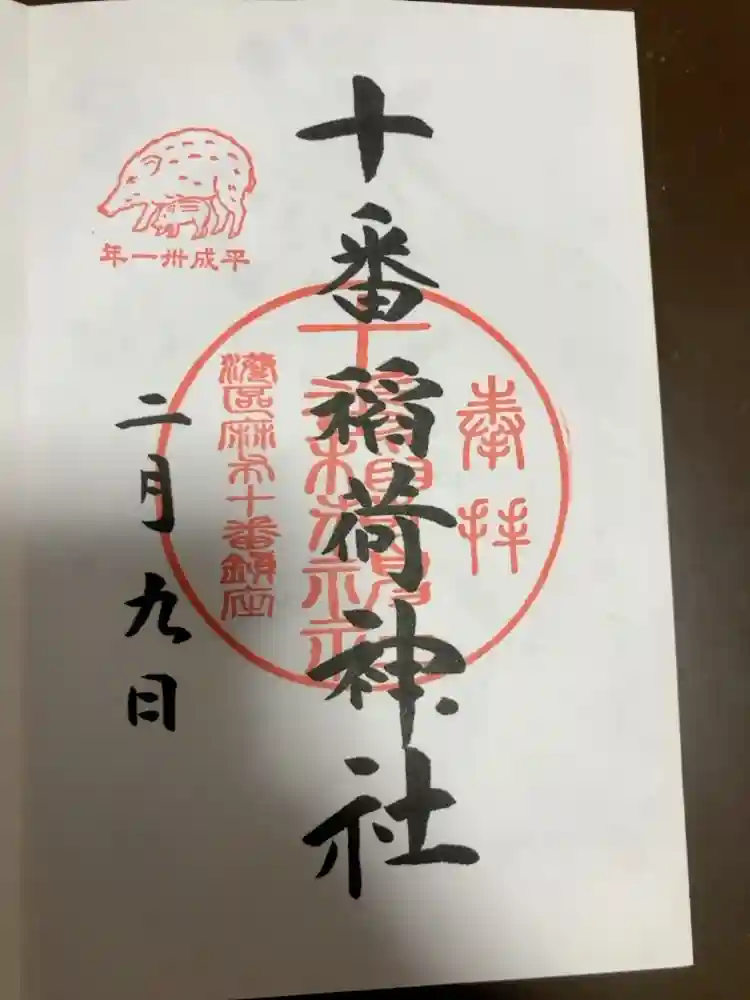 十番稲荷神社
奉拝
十番稲荷神社
港区麻布十番鎮座
平成卅一年
二月九日